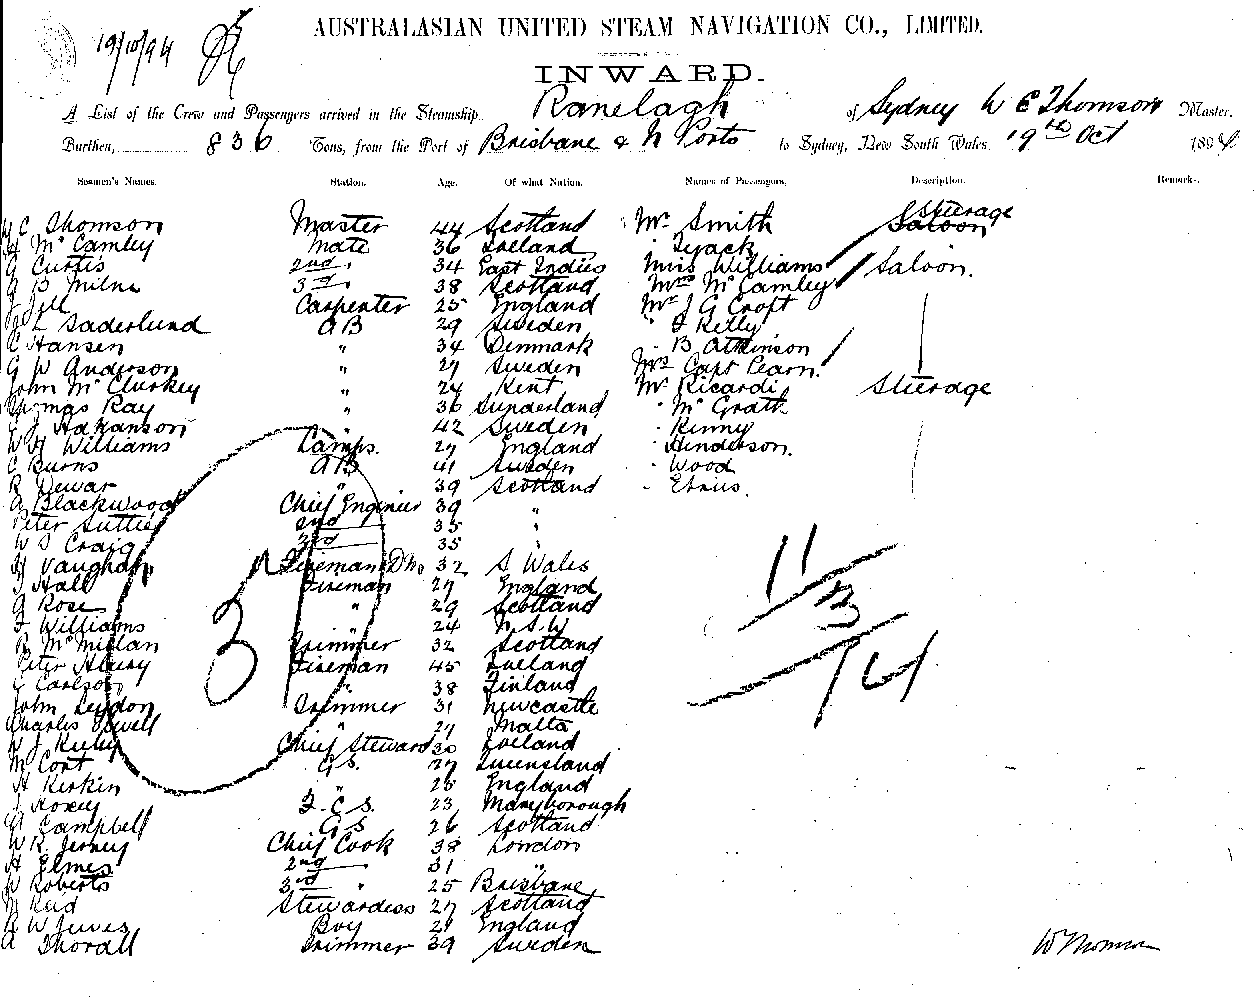 19/10/94
AUSTRALASIAN UNITED STEAM NAVIGATION CO., LIMITED.
INWARD.
A List of the Crew and Passengers arrived in the Steamship Ranelagh of Sydney W C Thomson Master.
Burthen, 836 Tons, from the Port of Brisbane & N Ports to Sydney, New South Wales. 19th Oct 1894
Seamen's Names. Station. Age. Of what Nation. Names of Passengers, Description. Remarks.
W C Thomson Master 44 Scotland Mr Smith Steerage Saloon
McCamley Mate 36 Ireland
G Curtis 2nd " 34 East Indies Miss Williams Saloon.
Milne 3rd " 38 Scotland Mrs McCamley
Carpenter 25 England Mr J G Croft
Saderlund AB 29 Sweden " Kelly
C Hansen " 34 Denmark " B Atkinson
G W Anderson " 27 Sweden Mrs Capt Pearn.
John McClurkey " 24 Kent Mr Ricardi Steerage
Thomas Ray " 36 Sunderland " McGrath
Hakanson " 42 Sweden " Kenny
W H Williams Lamps. 27 England " Henderson.
C Burns AB 41 Sweden " Wood
R Dewar " 39 Scotland "
Blackwood Chief Engineer 39 "
Peter Suttie 2nd 35 "
W S Craig 3rd 35 "
Vaughan Fireman 32 S Wales
Hall Fireman 27 England
G Rose " 29 Scotland
Williams " 24 N.S.W
McMillan Trimmer 32 Scotland
Peter Fireman 45 Ireland
Carlson " 38 Finland
John Leydon Trimmer 31 Newcastle
Charles " 27 Malta
W J Chief Steward 30 Ireland
M G.S. 27 Queensland
H " 25 England
J F.C.S. 23 Maryborough
Campbell G S 26 Scotland
W R. Chief Cook 38 London
H Elmes 2nd 31 "
W Roberts 3rd " 25 Brisbane
M Reid Stewardess 27 Scotland
Boy 21 England
A Thorall Trimmer 39 Sweden
3
11
3
14